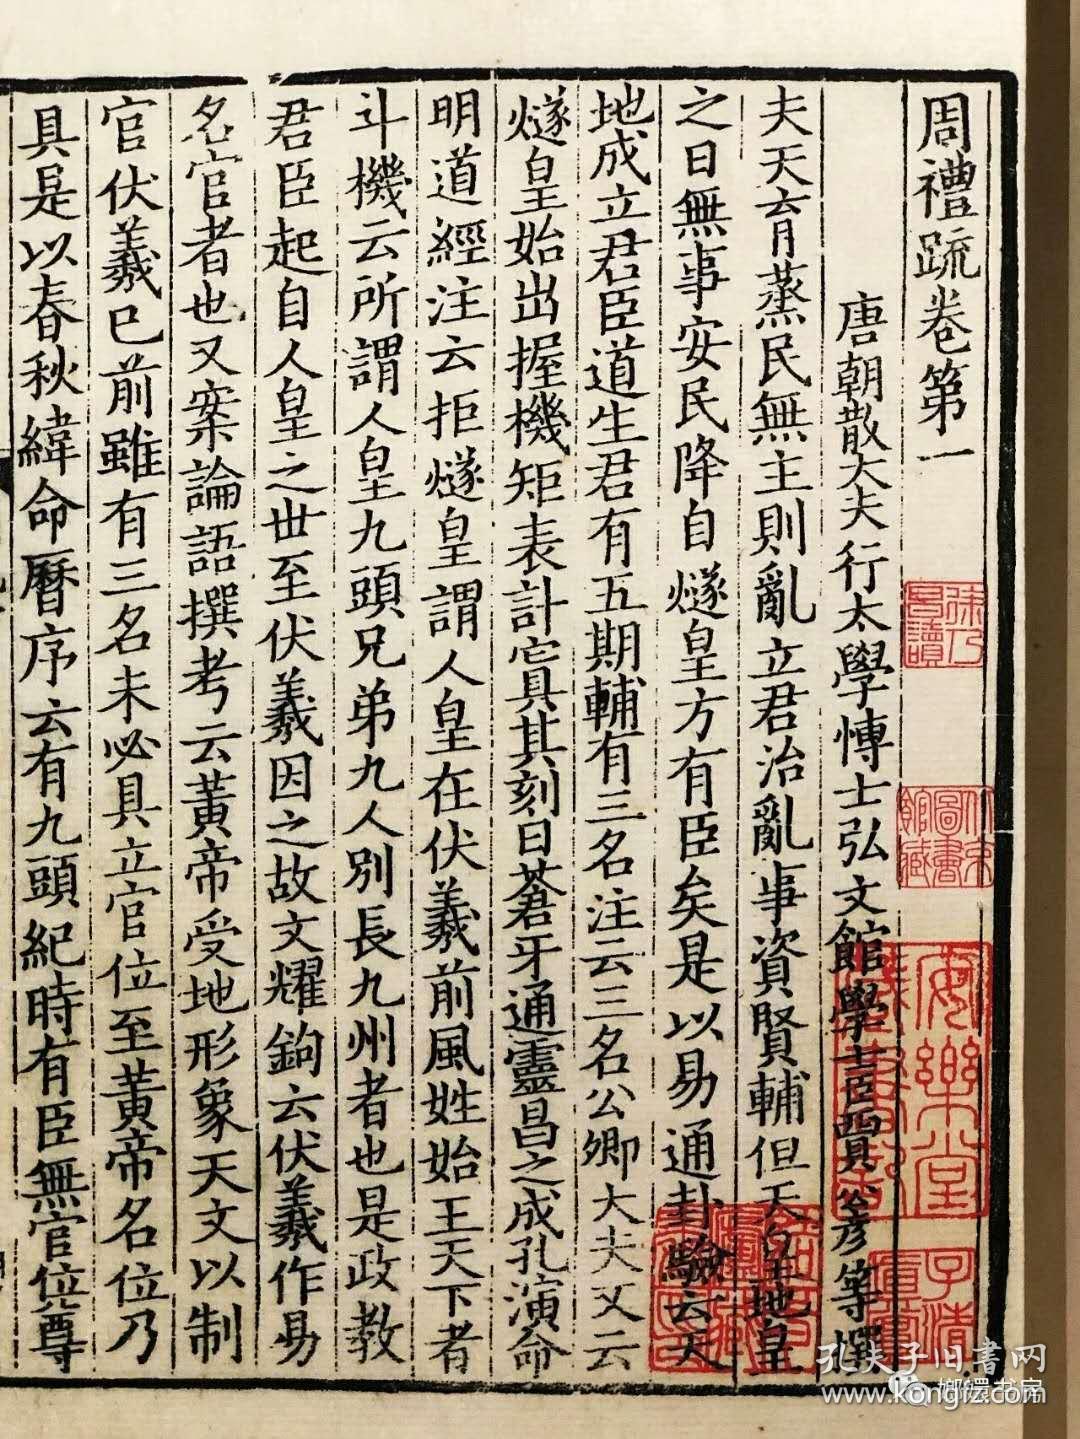 周禮疏卷第一
唐朝散大夫行太學博士弘文館學士臣賈公彥等撰
夫天育蒸民無主則亂立君治亂事資賢輔但天皇地皇
之日無事安民降自燧皇方有臣矣是以易通卦驗云天
地成立君臣道生君有五期輔有三名注云三名公卿大夫又云
燧皇始出握機矩表計寘其刻曰蒼牙通靈昌之成孔演命
明道經注云拒燧皇謂人皇在伏羲前風姓始王天下者
斗機云所謂人皇九頭兄弟九人別長九州者也是政教
君臣起自人皇之世至伏羲因之故文耀鉤云伏羲作易
名官者也又案論語撰考云黃帝受地形象天文以制
官伏羲已前雖有三名未必具立官位至黃帝名位乃
具是以春秋緯命曆序云有九頭紀時有臣無官位尊
徐乃昌讀
安樂堂
子清
孔夫子旧書网
www.kongfz.com
嫏嬛书房